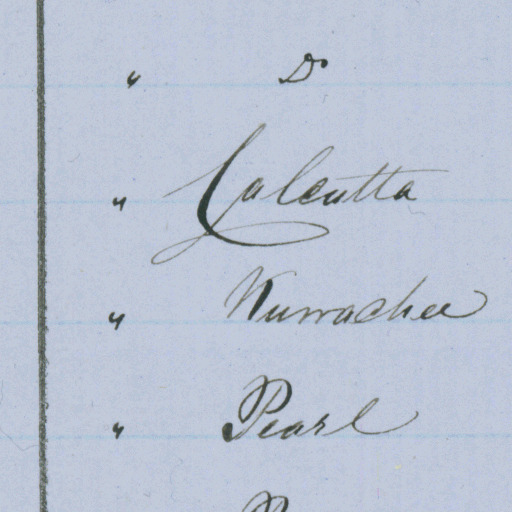 " Do
" Calcutta
" Kurrachee
" Pearl